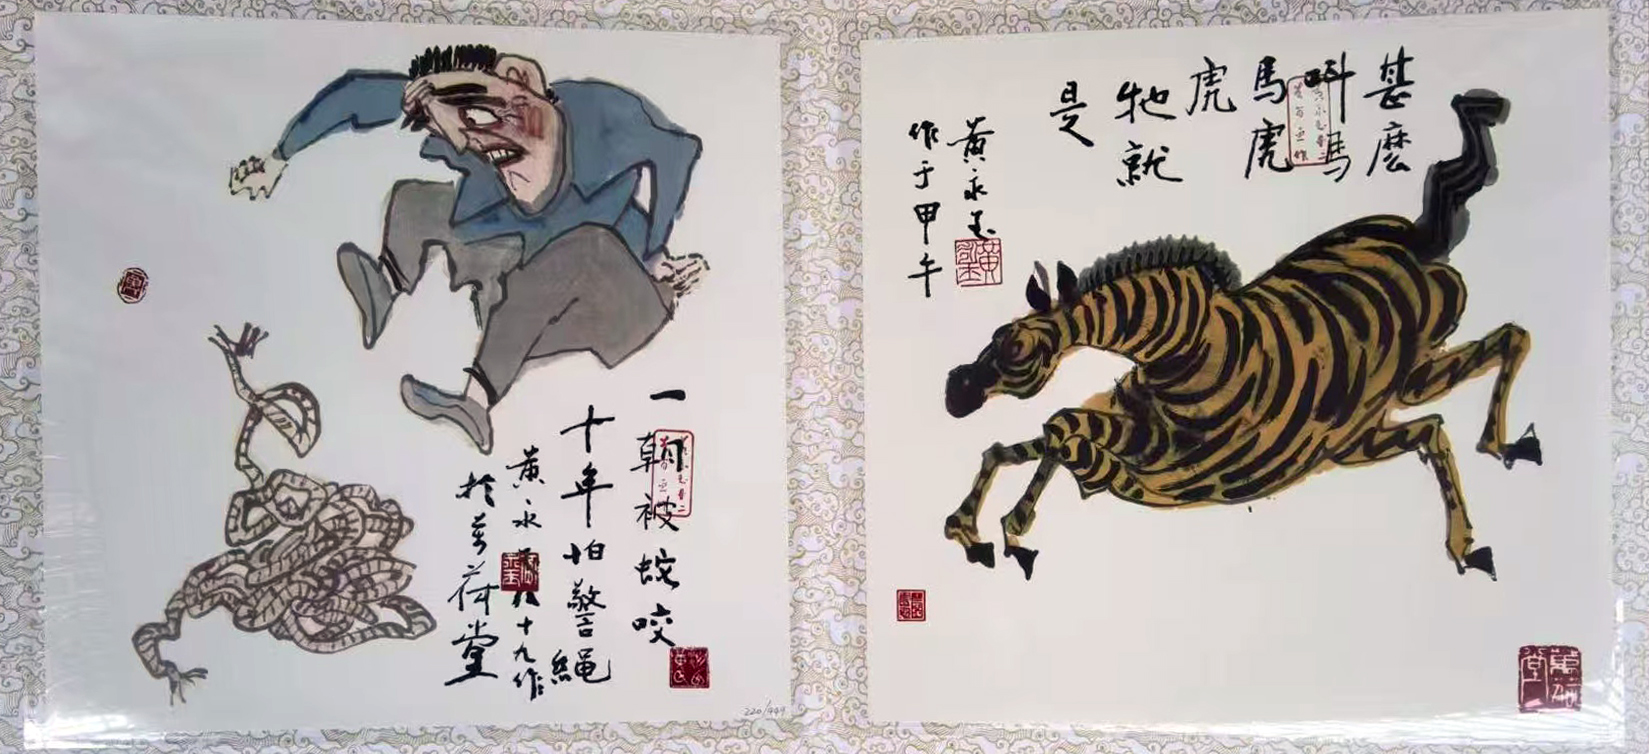 一朝被蛇咬
十年怕警繩
黄永玉八十九作
於萬荷堂
220/999
甚麽
叫馬
馬虎
虎
牠就
是
黄永玉
作于甲午
萬荷堂